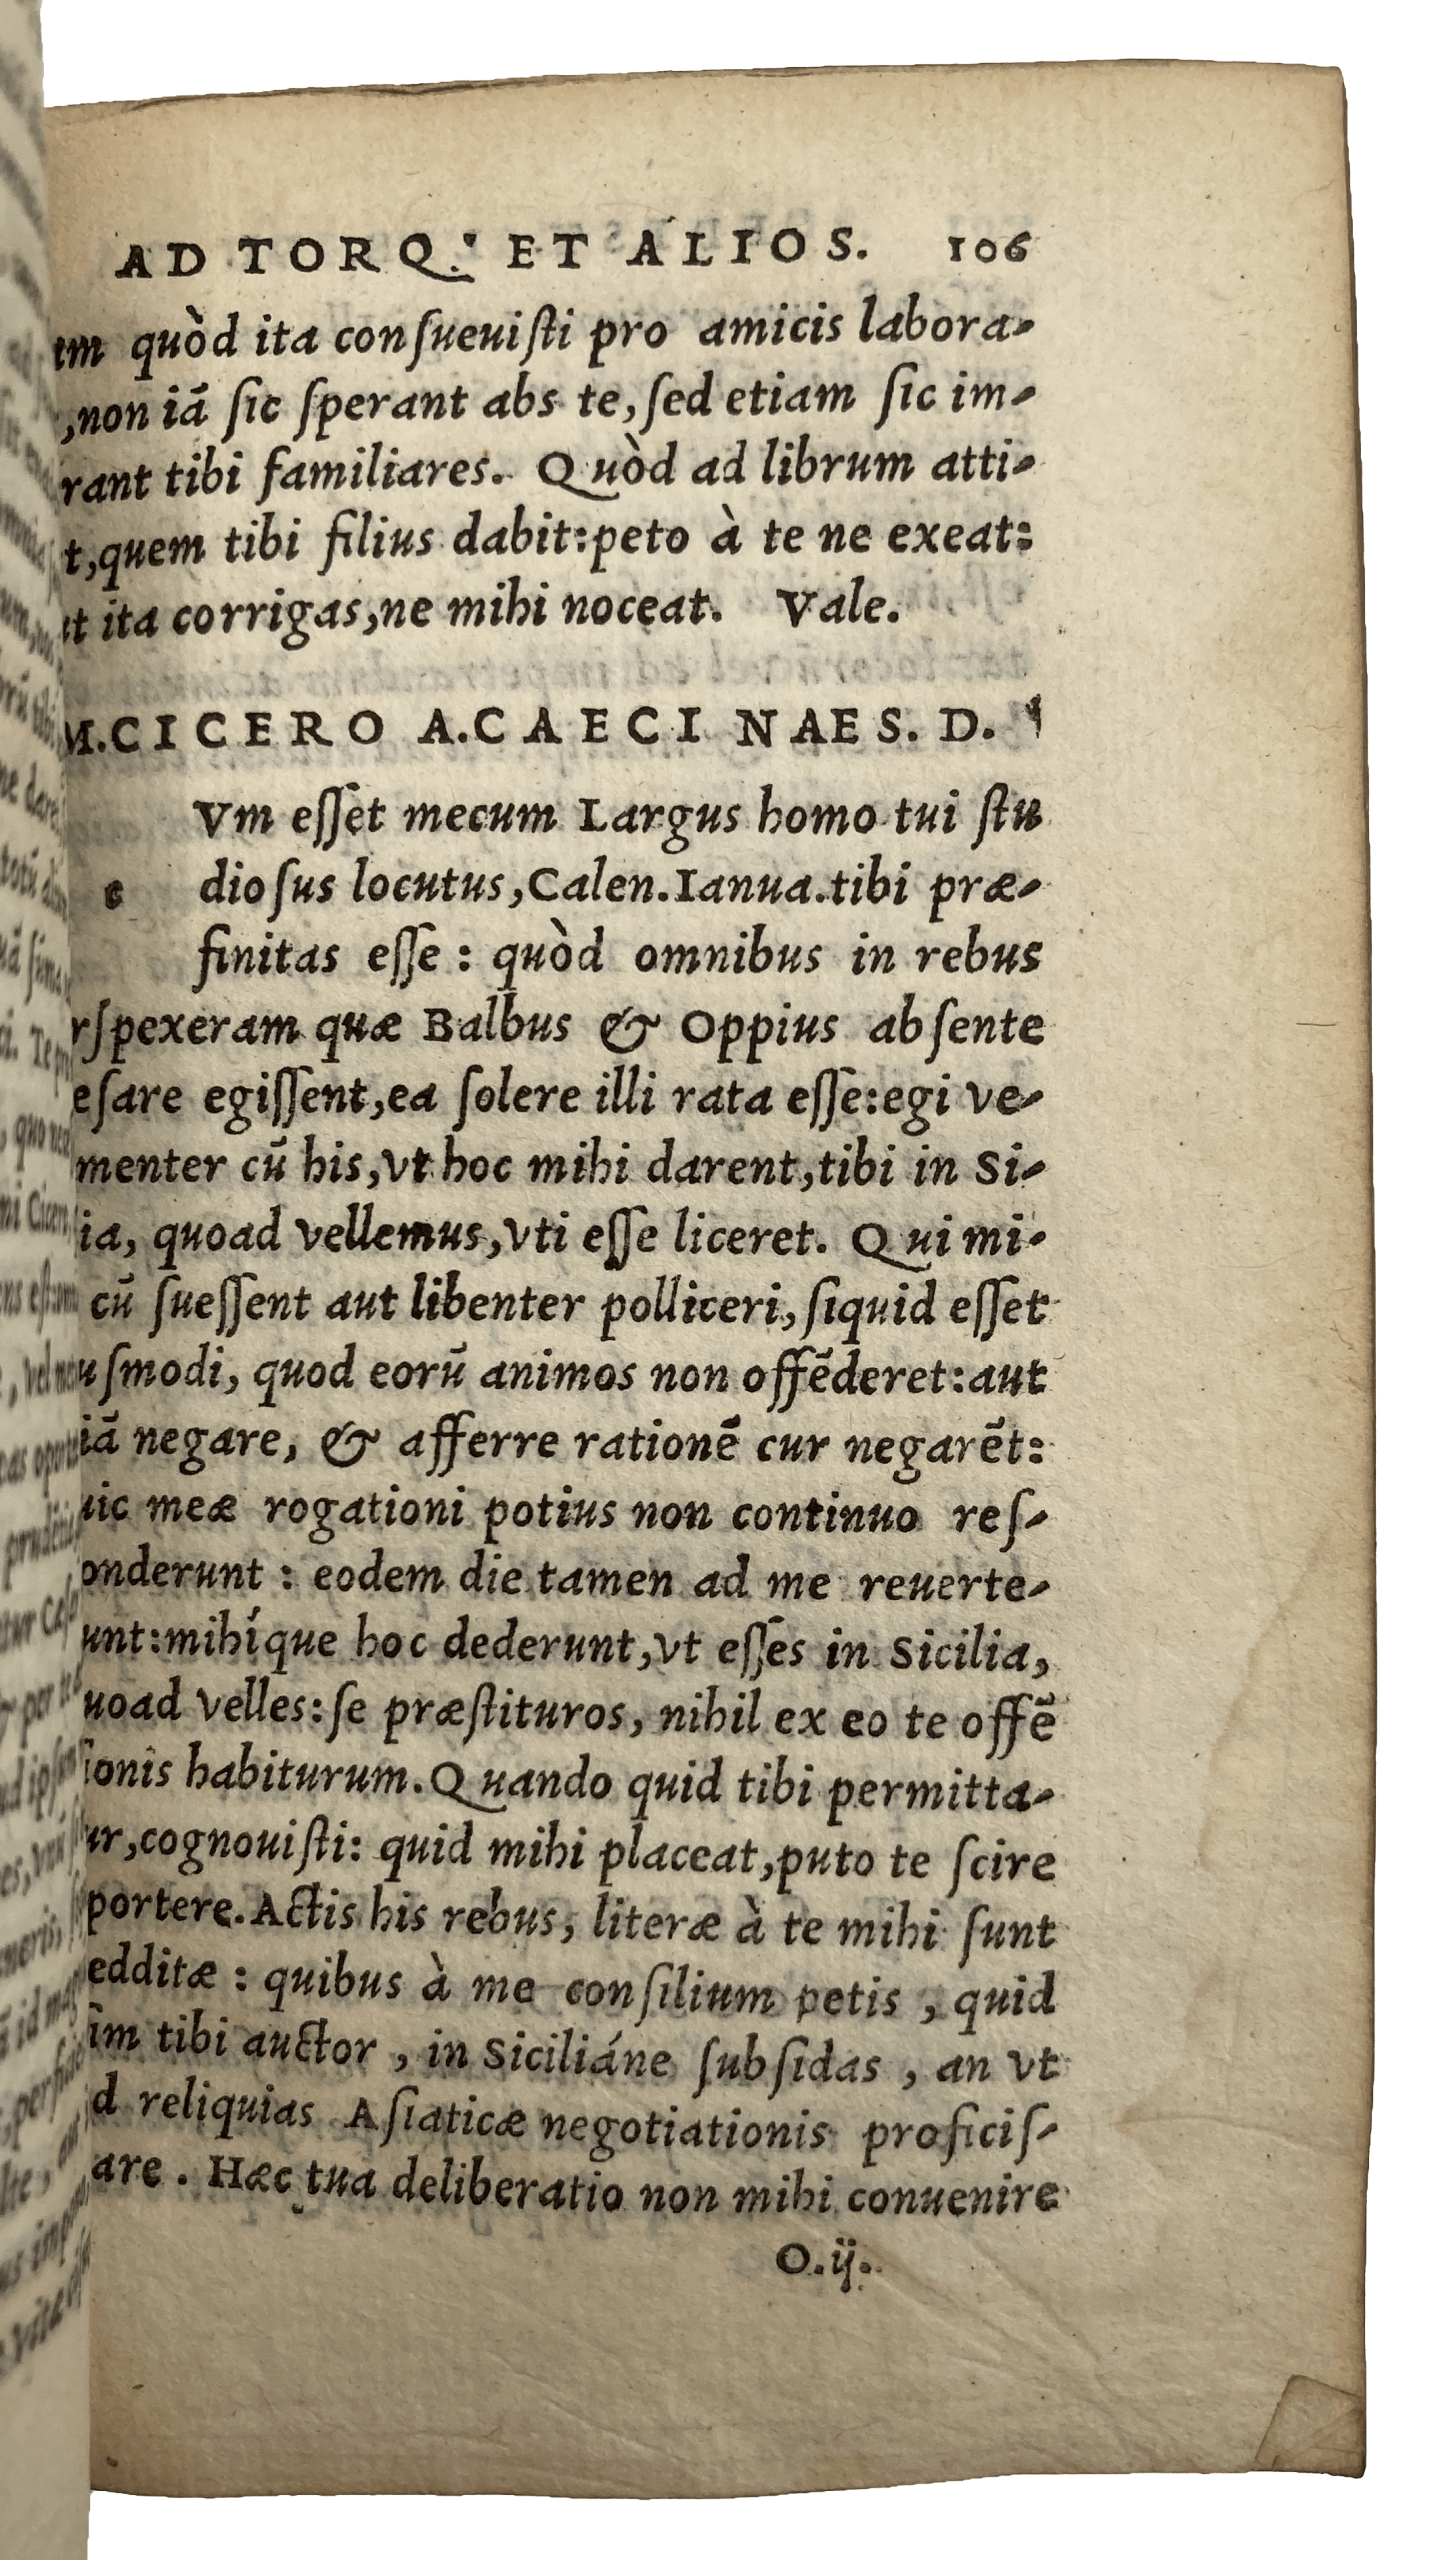 AD TORQ. ET ALIOS. 106
quòd ita conſueuiſti pro amicis labora-
,non iā ſic ſperant abs te,ſed etiam ſic im-
rant tibi familiares. Quòd ad librum atti-
t,quem tibi filius dabit:peto à te ne exeat:
ita corrigas,ne mihi noceat. Vale.
M.CICERO A.CAECINAE S. D.
Vm eſſet mecum Largus homo tui ſtu
c dioſus locutus,Calen.Ianua.tibi præ-
finitas eſſe : quòd omnibus in rebus
rſpexeram quæ Balbus & Oppius abſente
eſare egiſſent,ea ſolere illi rata eſſe:egi ve-
menter cū his,vt hoc mihi darent,tibi in Si-
ia, quoad vellemus,vti eſſe liceret. Qui mi-
cū ſueſſent aut libenter polliceri,ſiquid eſſet
uſmodi, quod eorū animos non offēderet:aut
iā negare, & afferre rationē cur negarēt:
uic meæ rogationi potius non continuo reſ-
onderunt : eodem die tamen ad me reuerte-
unt:mihíque hoc dederunt,vt eſſes in Sicilia,
uoad velles:ſe præſtituros, nihil ex eo te offē
ionis habiturum.Quando quid tibi permitta-
ur,cognouiſti: quid mihi placeat,puto te ſcire
portere.Actis his rebus, literæ à te mihi ſunt
edditæ : quibus à me conſilium petis , quid
im tibi auctor , in Siciliáne ſubſidas , an vt
d reliquias Aſiaticæ negotiationis proficiſ-
are . Hæc tua deliberatio non mihi conuenire
O.ij.